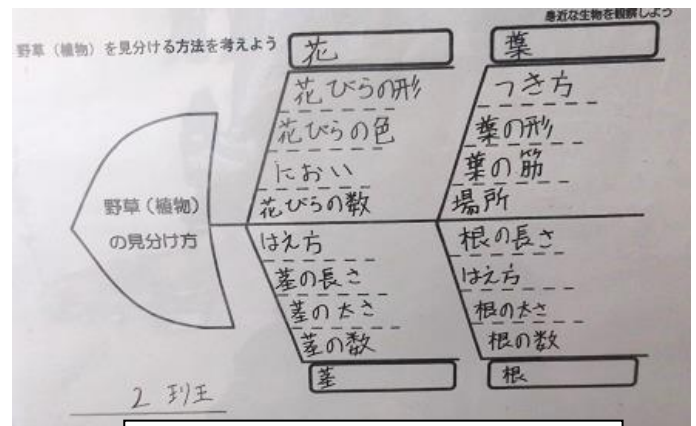 身近な生物を観察しよう
野草（植物）を見分ける方法を考えよう
花
花びらの形
花びらの色
におい
花びらの数
葉
つき方
葉の形
葉の筋
場所
野草（植物）
の見分け方
はえ方
茎の長さ
茎の太さ
茎の数
茎
根の長さ
はえ方
根の太さ
根の数
根
2 班